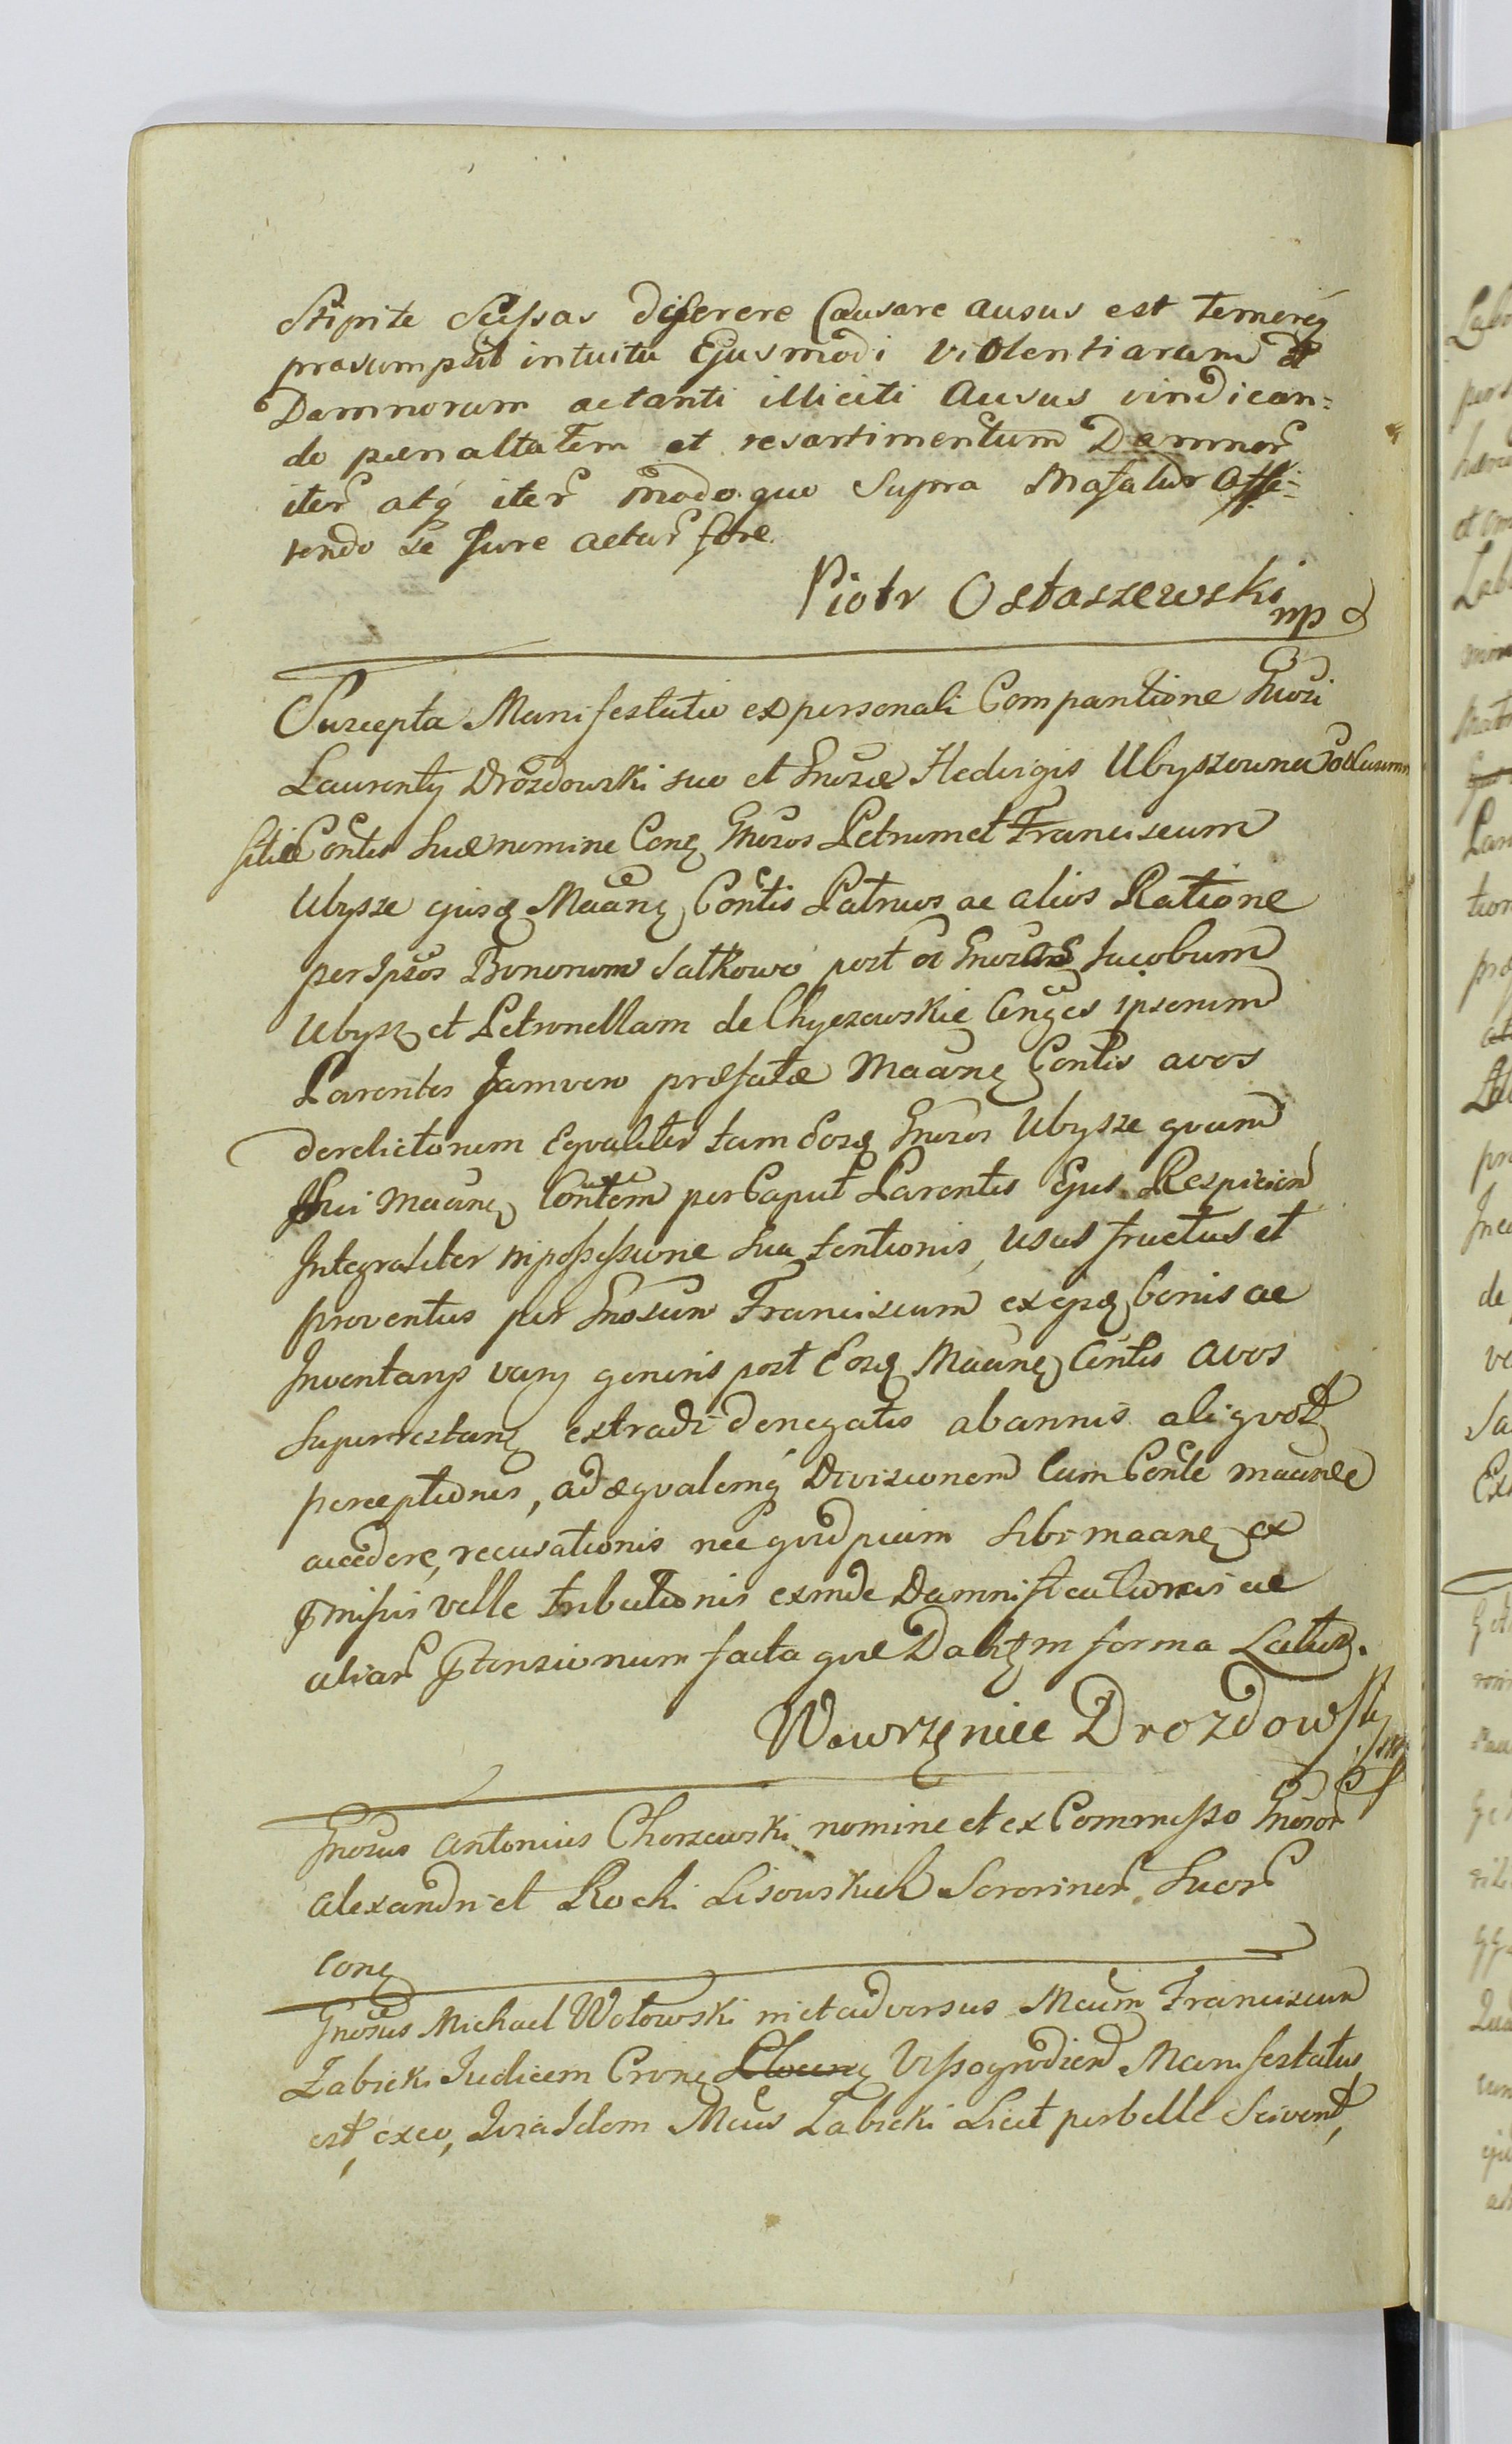 Stipite Scissas disserere Causare ausus est temereq
præsumpsit intuitu Ejusmodi violentiarum et
Damnorum ac tanti illiciti Ausus vindican=
do pœnalitatem et resartimentum Damnor
iter atq iter modo quo Supra Mafatur Offe=
rendo se Jure actur fore.
Piotr Ostaszewski mp
Suscepta Manifestatio ex personali Comparitione Gnosi
Laurentÿ Drozdowski suo et Gnosæ Hedvigis Ubyszowna
Contis suæ nomine Conq Gnosos Petrum et Franciscum
Ubysze ejusq Maanq Contis Patruos ac alios Ratione
per Ipsos Bonorum Satkowo post Gnosos Jacobum
Ubysz et Petronellam de Chyczewskie Conges ipsorum
Parentes Jam vero præfatæ Maanq Contis avos
derelictorum Eqvaliter tam Eosq Gnosos Ubysze qvam
Sui Maanq Contem per Caput Parentis Ejus Respicien
Integraliter in possessione sua tentionis, usus fructus et
proventus per Gnosum Franciscum ex ejsq bonis ac
Inventarÿs varÿ generis post Eosq Maanq Contis avos
Superrestanq extradi denegatis ab annis aliqvot
perceptionis, ad æqvalemq Divisionem cum Conte maanæ
accedere, recusationis nec qvidpiam sibi maanq ex
pmissis velle tributionis exinde Damnificationis ac
aliar ptensionum facta qvæ Dabit in forma Latius.
Wawrzeniec Drozdowski mp
Gnosus Antonius Chorzewski nomine et ex Commisso Gnosor
Alexandri et Rochi Lisowskich Sororinor Suor
Conq
Gnosus Michael Wołowski in et adversus Mcum Franciscum
Zabicki Judicem Cronq Wyssogrodien Manifestatus
est, ex eo, Quia Idem Mcus Zabicki Licet perbelle Sciverit,